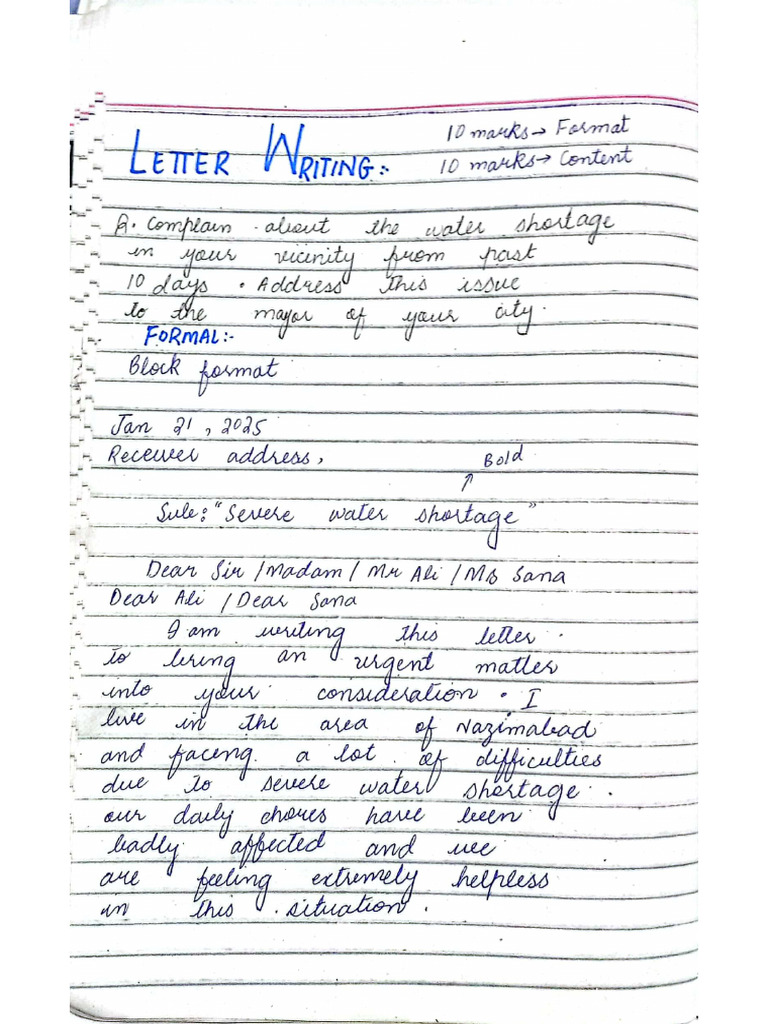 LETTER WRITING:-
10 marks → Format
10 marks → Content
Q. Complain about the water shortage
in your vicinity from past
10 days. Address this issue
to the mayor of your city.
FORMAL:-
Block format
Jan 21, 2025
Receiver address,
Bold
Sub: "Severe water shortage"
Dear Sir / Madam / Mr Ali / Ms Sana
Dear Ali / Dear Sana
I am writing this letter
to bring an urgent matter
into your consideration. I
live in the area of Nazimabad
and facing a lot of difficulties
due to severe water shortage.
our daily chores have been
badly affected and we
are feeling extremely helpless
in this situation.